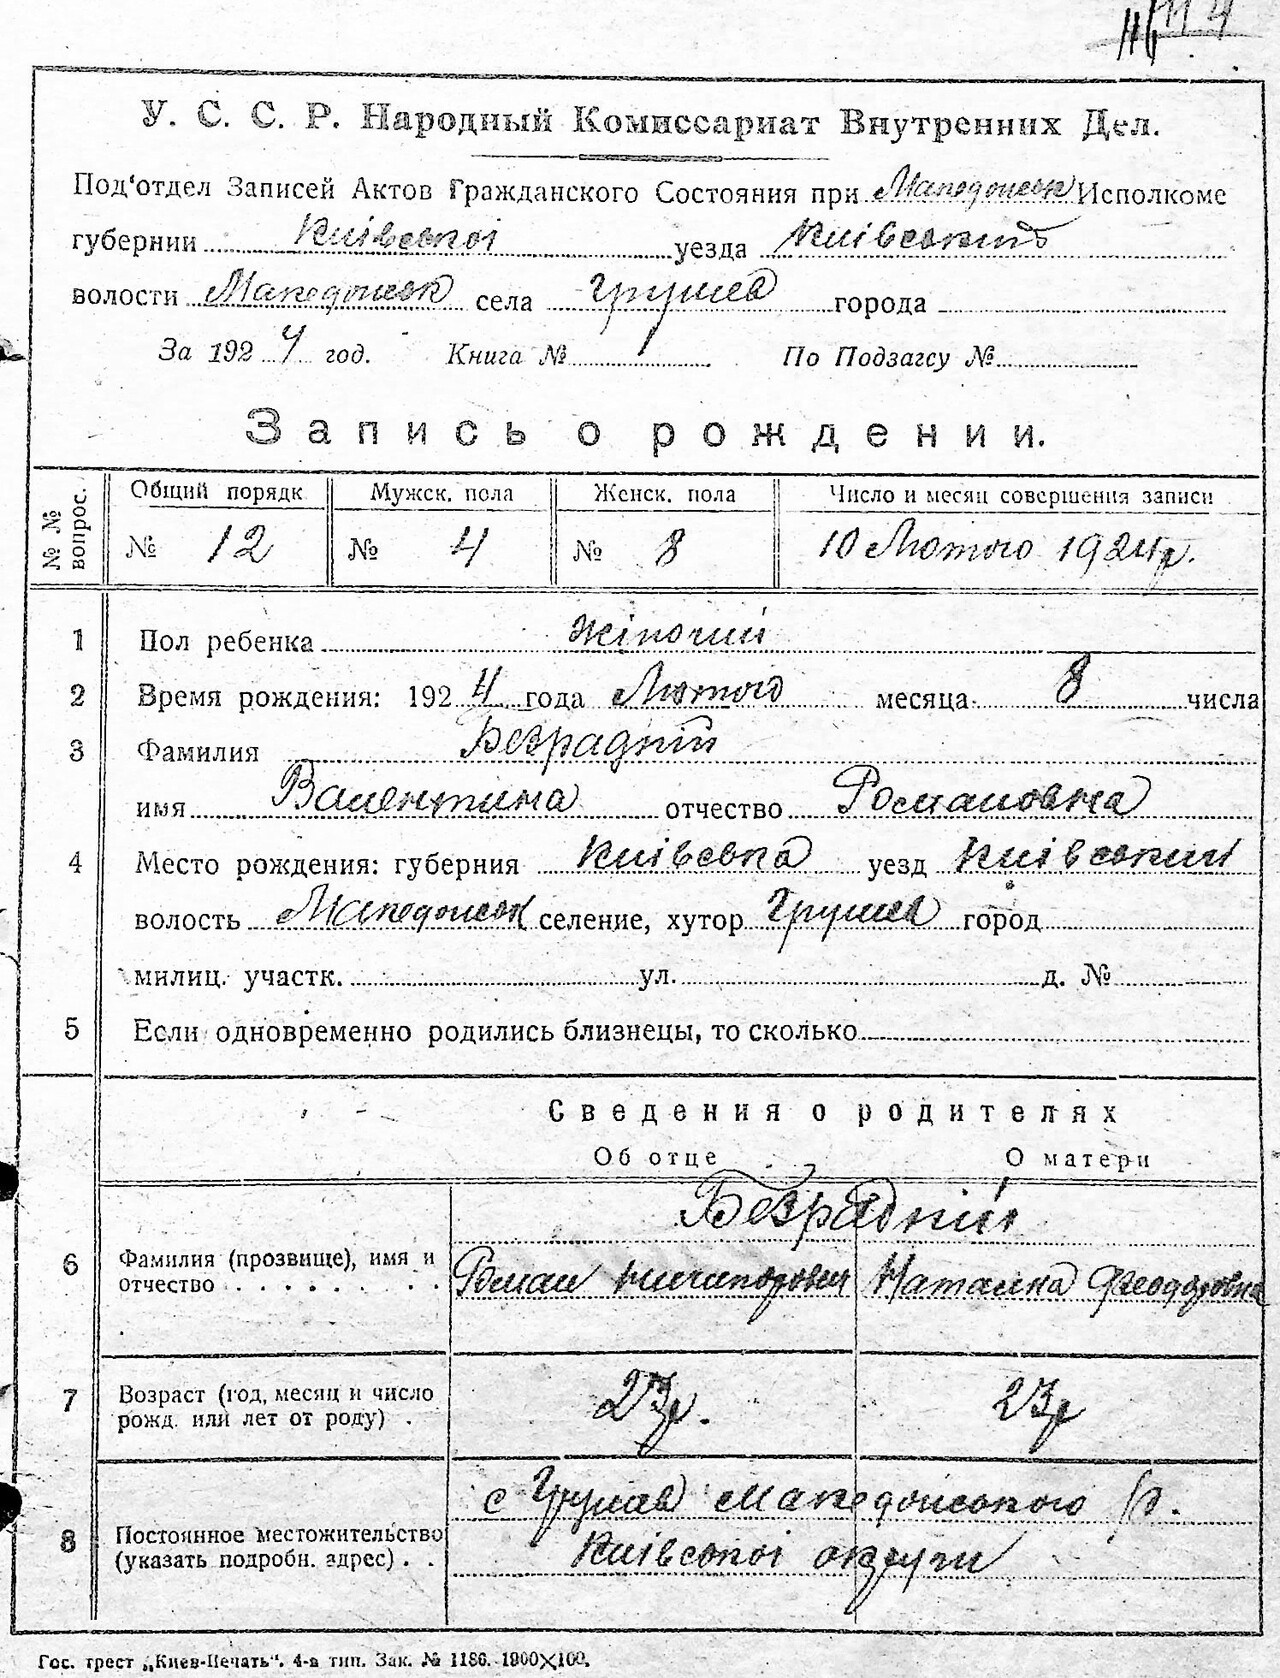 У. С. С. Р. Народный Комиссариат Внутренних Дел.
Под'отдел Записей Актов Гражданского Состояния при Македонськ Исполкоме
губернии Київської уезда Київський
волости Македонськ села Грушев города
За 1924 год. Книга № По Подзагсу №
Запись о рождении.
№ № вопрос. Общий порядк Мужск. пола Женск. пола Число и месяц совершения записи
№ 12 № 4 № 8 10 Лютого 1924р.
1 Пол ребенка жіночий
2 Время рождения: 1924 года Лютого месяца 8 числа
3 Фамилия Безрадній
имя Валентина отчество Романовна
4 Место рождения: губерния Київська уезд Київський
волость Македонськ селение, хутор Грушев город
милиц. участк. ул. д. №
5 Если одновременно родились близнецы, то сколько
Сведения о родителях
Об отце О матери
Безрадній
6 Фамилия (прозвище), имя и Роман Ничипорович Наталка Феодоровна
отчество . . . . . . . . .
7 Возраст (год, месяц и число 23р. 23р
рожд. или лет от роду) .
с Грушев Македонського р.
8 Постоянное местожительство Київської округи
(указать подробн. адрес) . .
Гос. трест „Киев-Печать“. 4-я тип. Зак. № 1186. 1900×100.